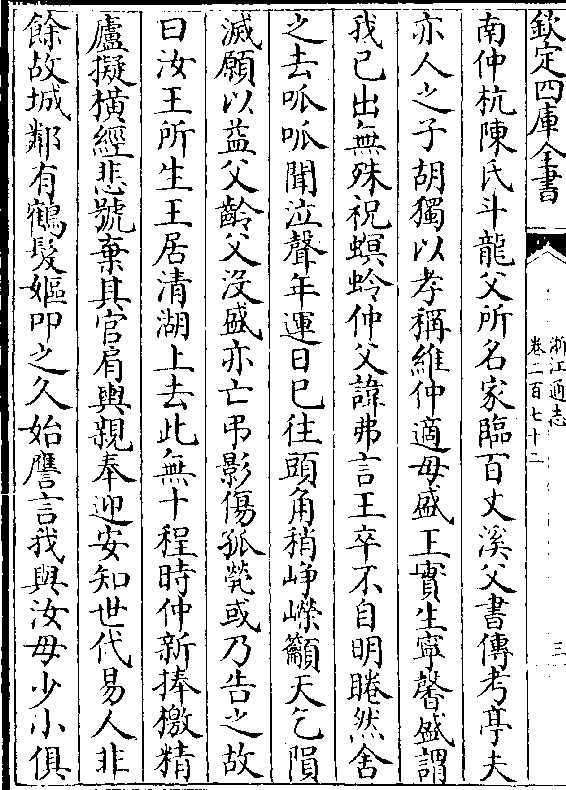 欽定四庫全書
浙江通志
卷二百七十二
三
南仲杭陳氏斗龍父所名家臨百丈溪父書傳考亭夫
亦人之子胡獨以孝稱維仲適母盛王實生寧馨盛謂
我已出無殊祝螟蛉仲父諱弗言王卒不自明睠然舍
之去呱呱聞泣聲年運日已往頭角稍崢嶸籲天乞隕
滅願以益父齡父没盛亦亡弔影傷孤煢或乃告之故
曰汝王所生王居清湖上去此無十程時仲新捧檄精
廬擬橫經悲號棄其官肩輿親奉迎安知世代易人非
餘故城鄰有鶴髮嫗叩之久始譍言我與汝母少小俱